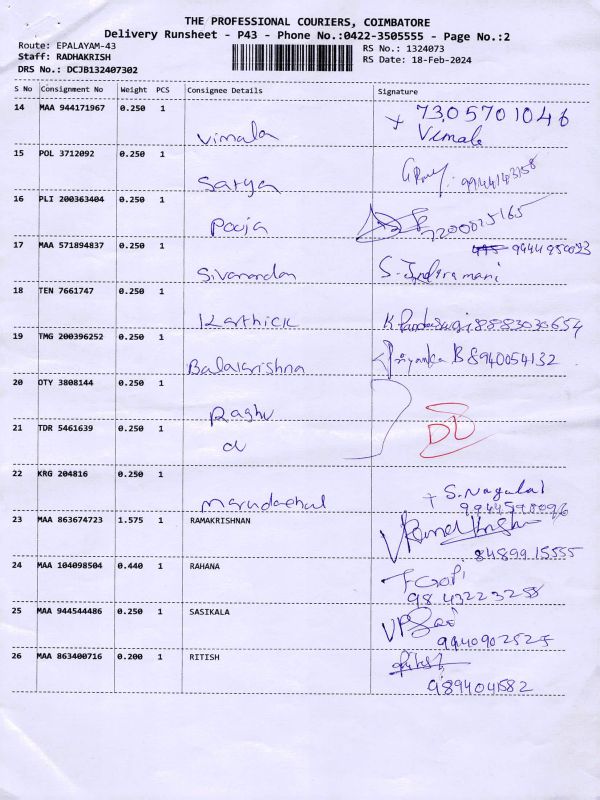 THE PROFESSIONAL COURIERS, COIMBATORE
Delivery Runsheet - P43 - Phone No.:0422-3505555 - Page No.:2
Route: EPALAYAM-43 RS No.: 1324073
Staff: RADHAKRISH RS Date: 18-Feb-2024
DRS No.: DCJB132407302
S No Consignment No Weight PCS Consignee Details Signature
14 MAA 944171967 0.250 1 7305701046
Vimala Vimala
15 POL 3712092 0.250 1
Satya 9944143158
16 PLI 200363404 0.250 1
Pooja 7200025165
17 MAA 571894837 0.250 1 9444950093
Sivanandan S. Indiramani
18 TEN 7661747 0.250 1
Karthick K. 8883030654
19 TMG 200396252 0.250 1 Priyanka B 8940054132
Balakrishna
20 OTY 3808144 0.250 1
Raghu
21 TDR 5461639 0.250 1 DD
a
22 KRG 204816 0.250 1 S. Nagulal
Marudachal 9944598096
23 MAA 863674723 1.575 1 RAMAKRISHNAN
8489915555
24 MAA 104098504 0.440 1 RAHANA T Gopi
9843223258
25 MAA 944544486 0.250 1 SASIKALA
9940902525
26 MAA 863400716 0.200 1 RITISH
9894041582